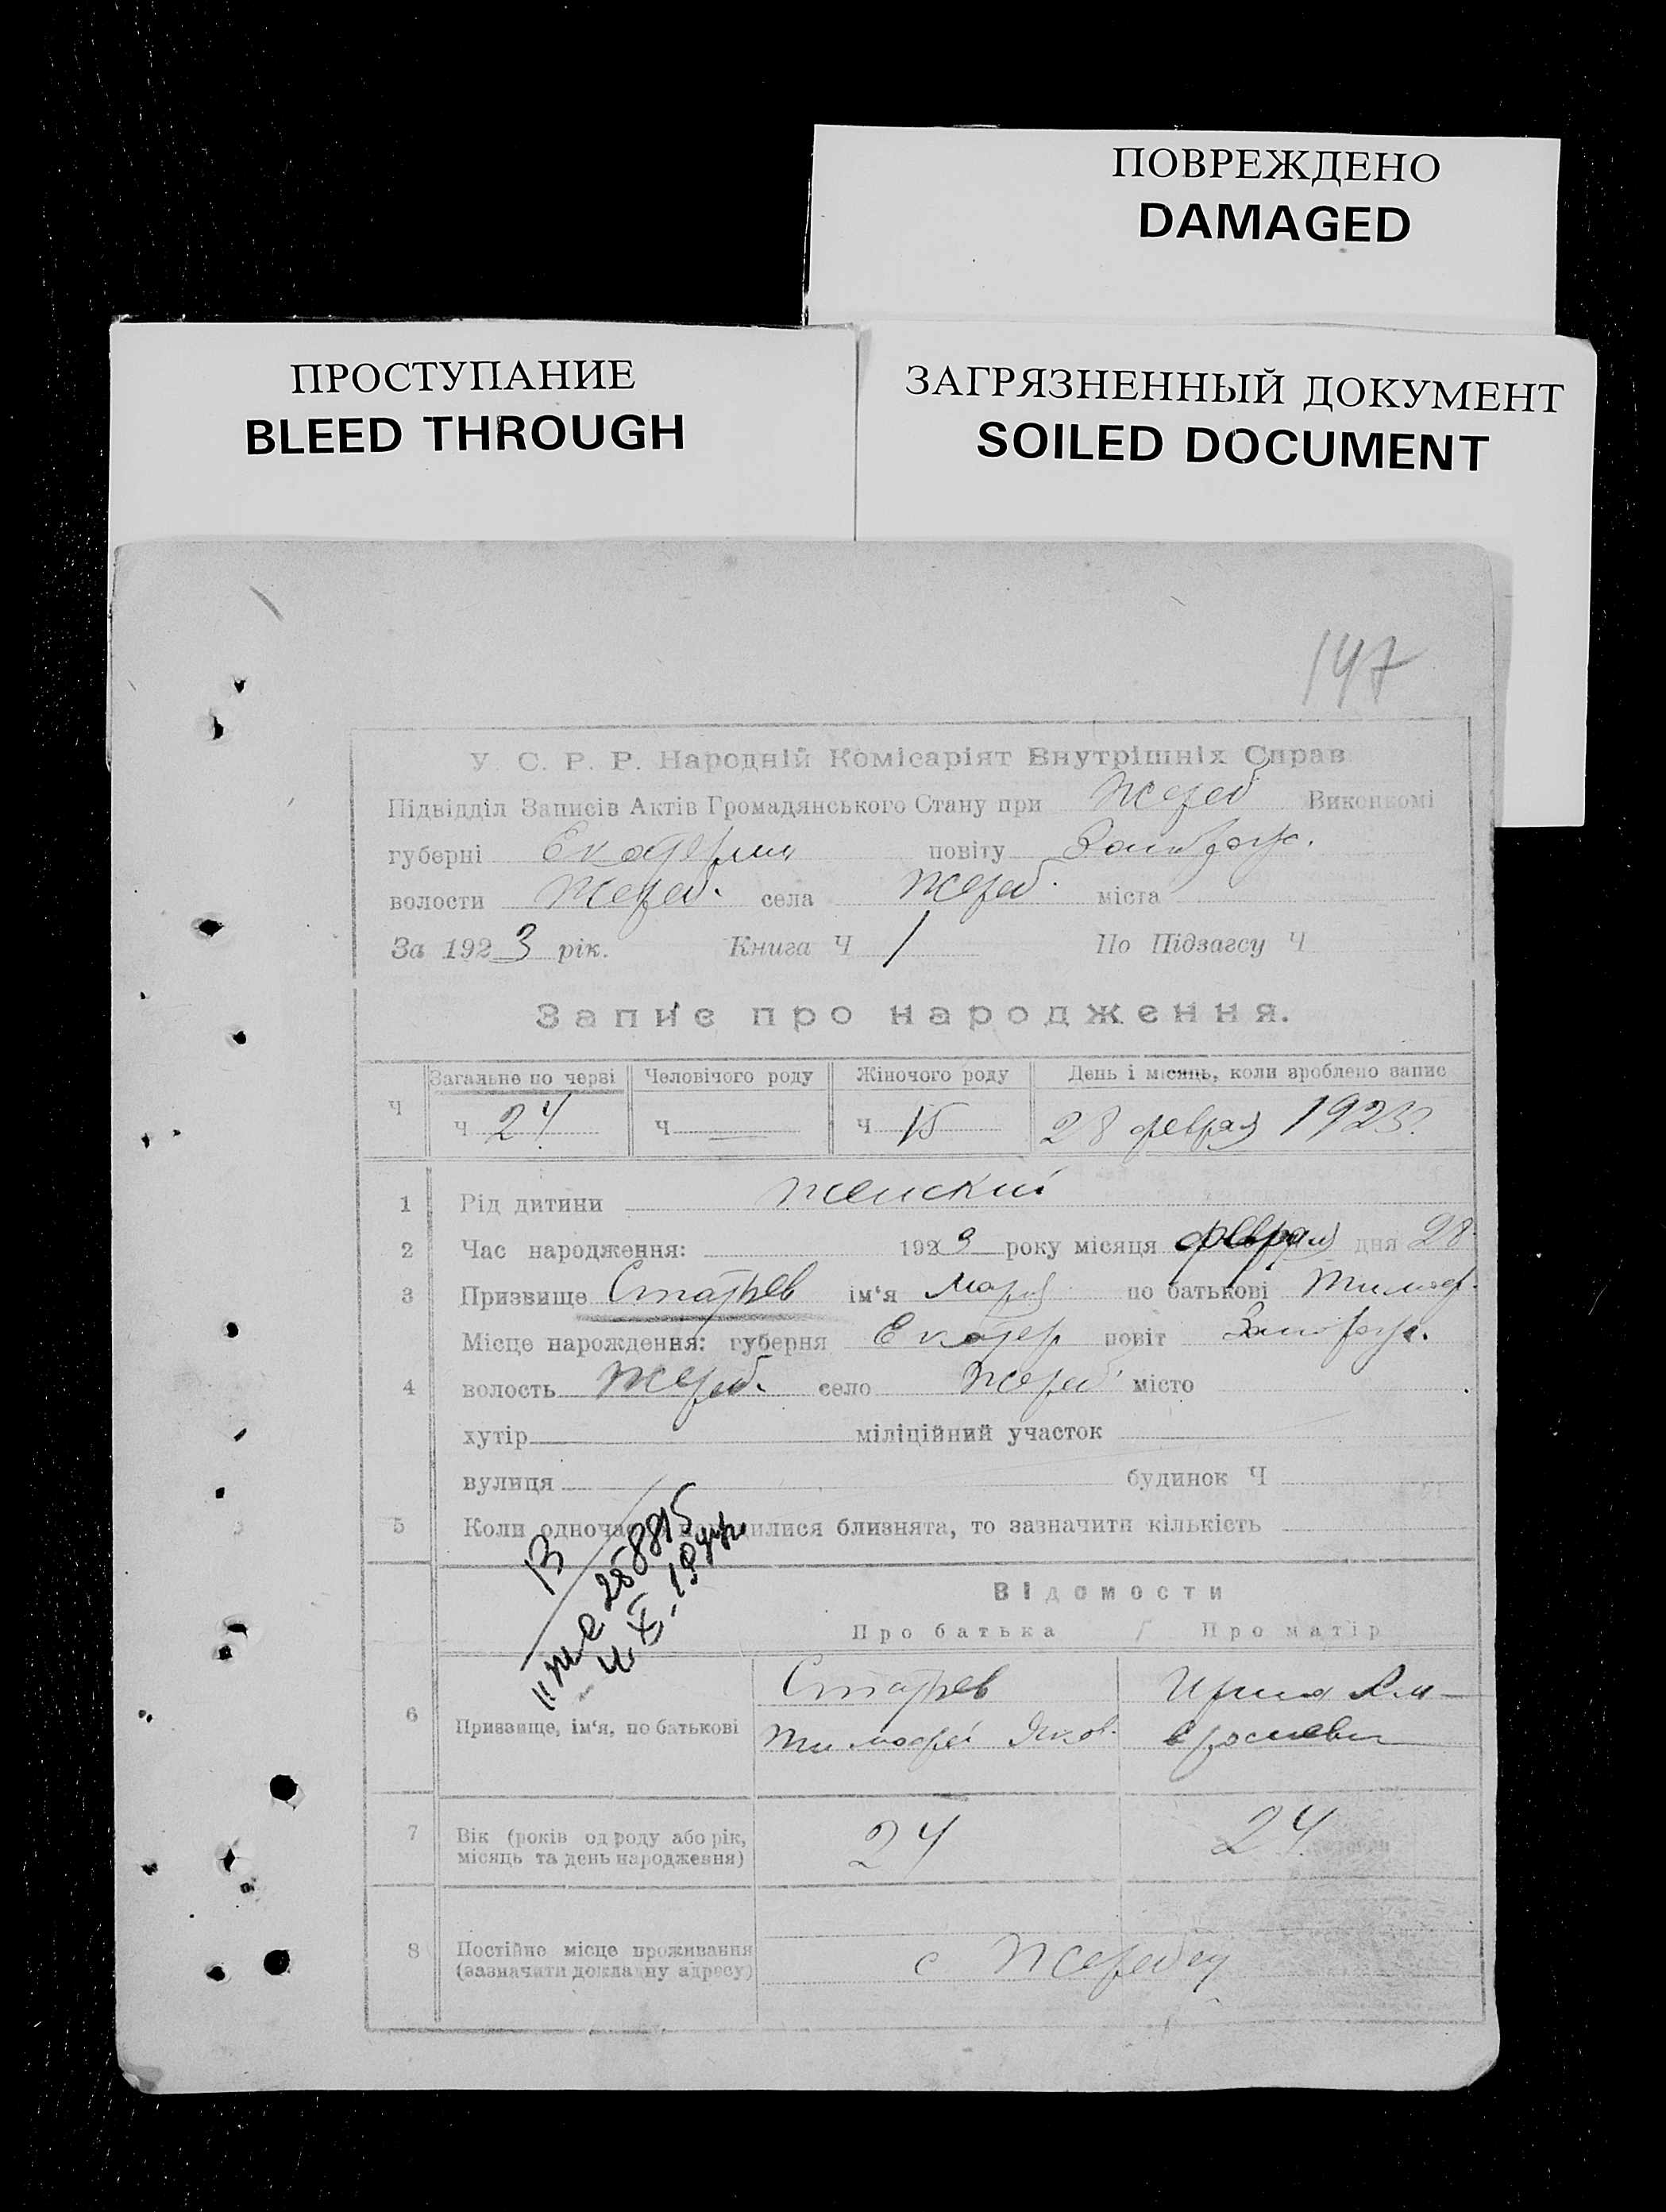 ПОВРЕЖДЕНО
DAMAGED
ПРОСТУПАНИЕ
BLEED THROUGH
ЗАГРЯЗНЕННЫЙ ДОКУМЕНТ
SOILED DOCUMENT
147
У. С. Р. Р. Народній Комісаріят Внутрішніх Справ
Підвідділ Записів Актів Громадянського Стану при Жереб Виконкомі
губерні Екатерин повіту Запорож.
волости Жереб. села Жереб. міста
За 1923 рік. Книга Ч 1 По Підзагсу Ч
Запис про народження.
Ч Загальне по черві Человічого роду Жіночого роду День і місяць, коли зроблено запис
Ч 24 Ч — Ч 15 28 февраля 1923.
1 Рід дитини женский
2 Час народження: 1923 року місяця февраля дня 28
3 Призвище ім'я Мария по батькові Тимоф.
Місце народження: губерня Екатер повіт Запорож.
4 волость Жереб. село Жереб. місто
хутір міліційний участок
вулиця будинок Ч
5 Коли одночасно народилися близнята, то зазначити кількість
Відомости
Про батька Про матір
6 Призвище, ім'я, по батькові
Тимофей Яков. Ирина
7 Вік (років од роду або рік, місяць та день народження) 24 24
8 Постійне місце проживання (зазначити докладну адресу) с Жеребец